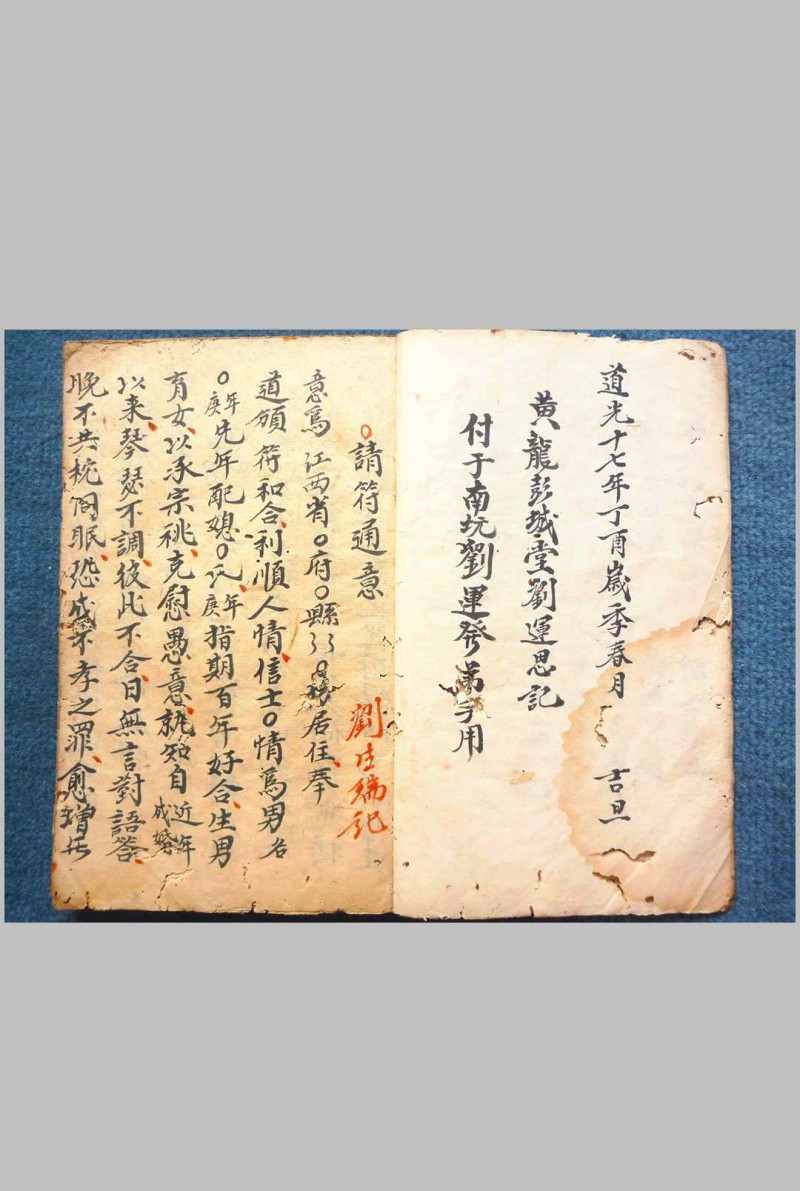 道光十七年丁酉歲季春月 吉旦
黄龍彭城堂劉運思記
付于南坑劉運發 用
請符通意
劉 瑞記
意爲江西省〇府〇縣 居住奉
道頒符和合利順人情信士〇情爲男名
〇年庚先年配媳〇氏年庚指期百年好合生男
育女以承宗祧克慰愚意孰知自近年成婚
以来琴瑟不調彼此不合日無言對語答
晚不共枕同眠恐成不孝之罪愈增